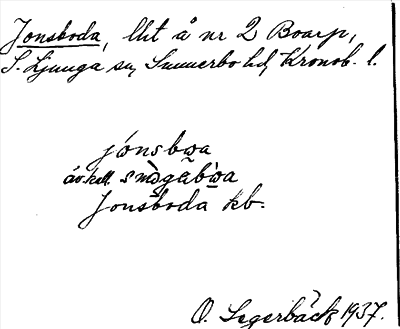 Jonsboda, lht å nr 2 Boarp,
S. Ljunga sn, Sunnerbo hd, Kronob. l.
jónsbωa
äv. kall. smɔ̀gabὼa
Jonsboda kb.
O. Segerbäck 1937.